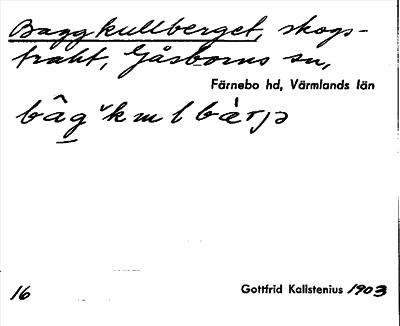 Baggkullberget, skogs-
trakt, Gåsborns sn,
Färnebo hd, Värmlands län
16
Gottfrid Kallstenius 1903